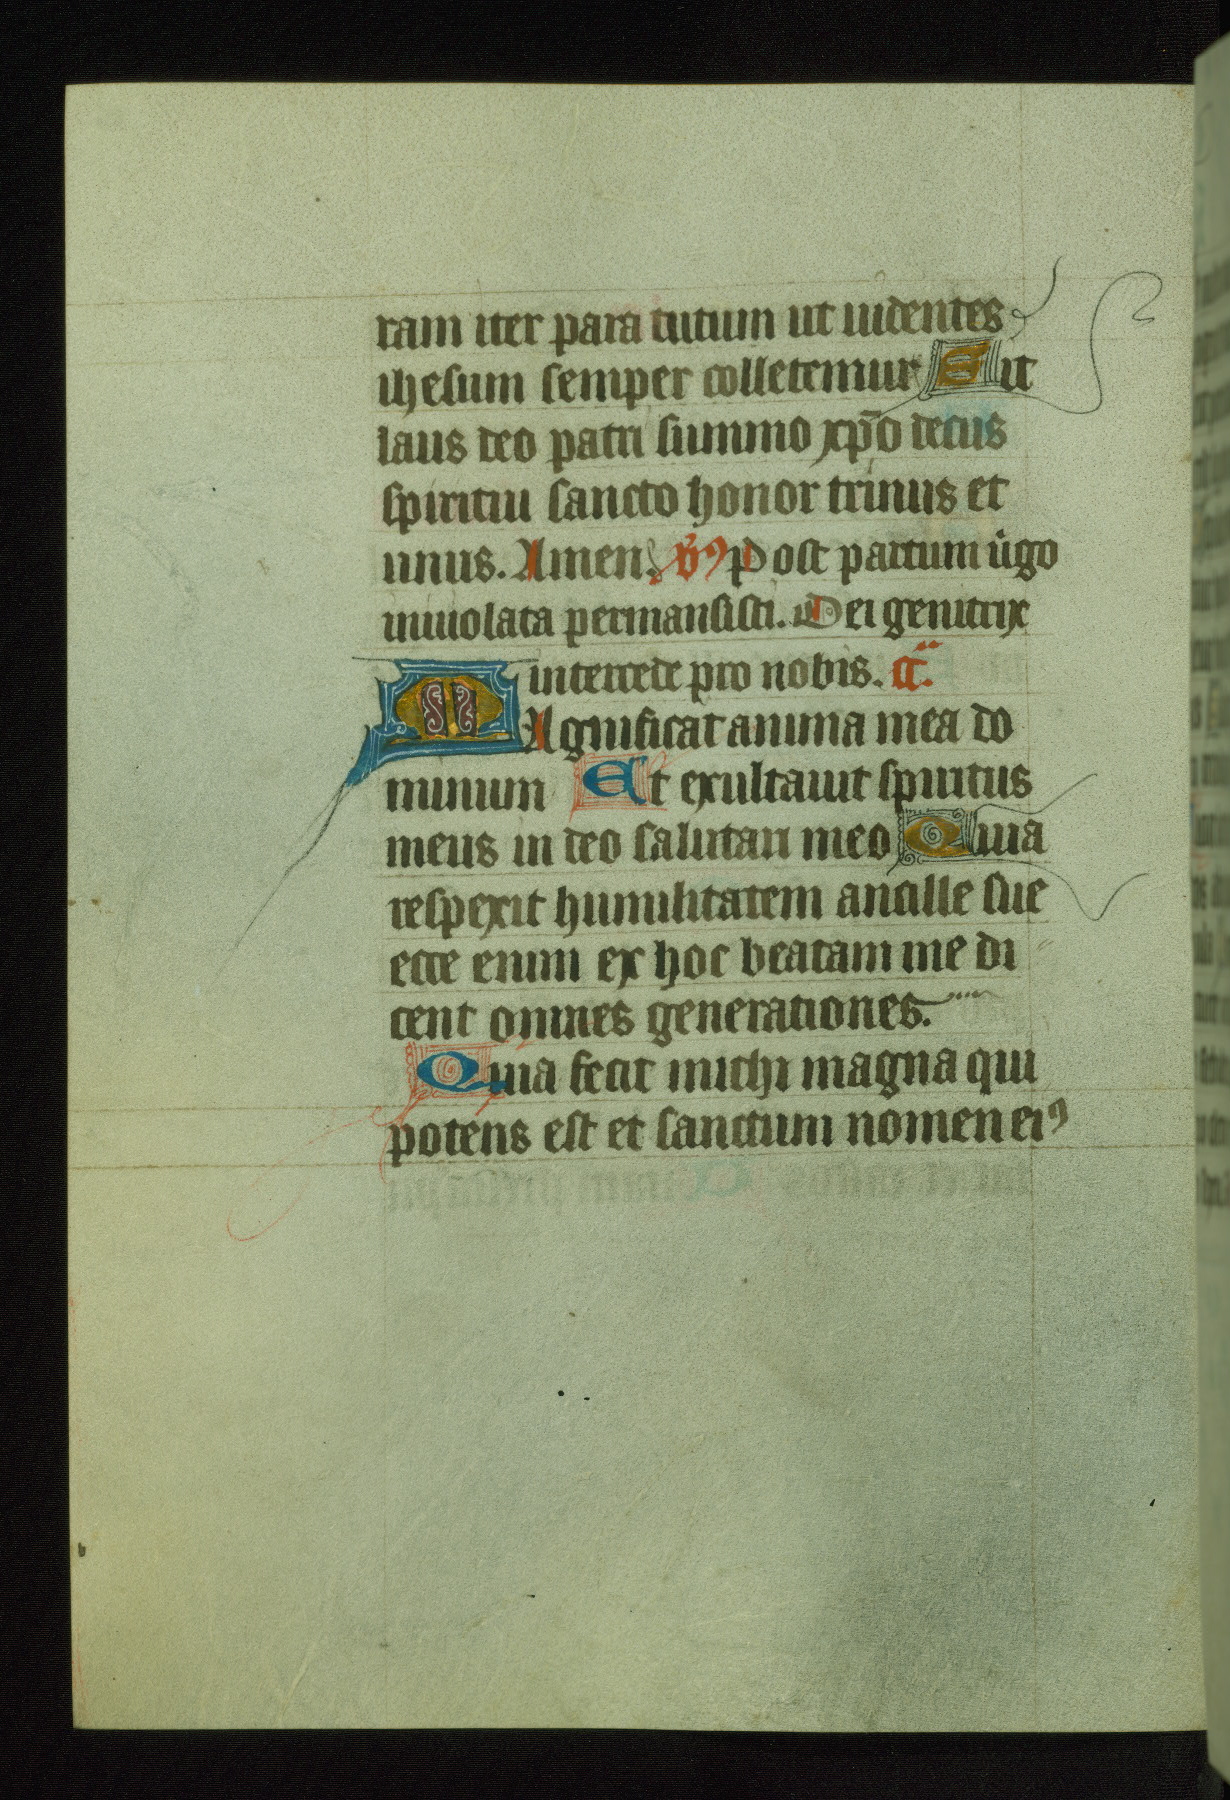 ram iter para tutum ut uidentes
ihesum semper colletemur Sit
laus deo patri summo xp̄o decus
spirituu sancto honor trinus et
unus. Amen. Post partum uͥgo
inuiolata permansisti. Dei genitrix
intercede pro nobis.
MAgnificat anima mea do
minum Et exultauit spiritus
meus in deo salutari meo Quia
respexit humilitatem ancille sue
ecce enim ex hoc beatam me di
cent omnes generationes.
Quia fecit michi magna qui
potens est et sanctum nomen eiꝰ